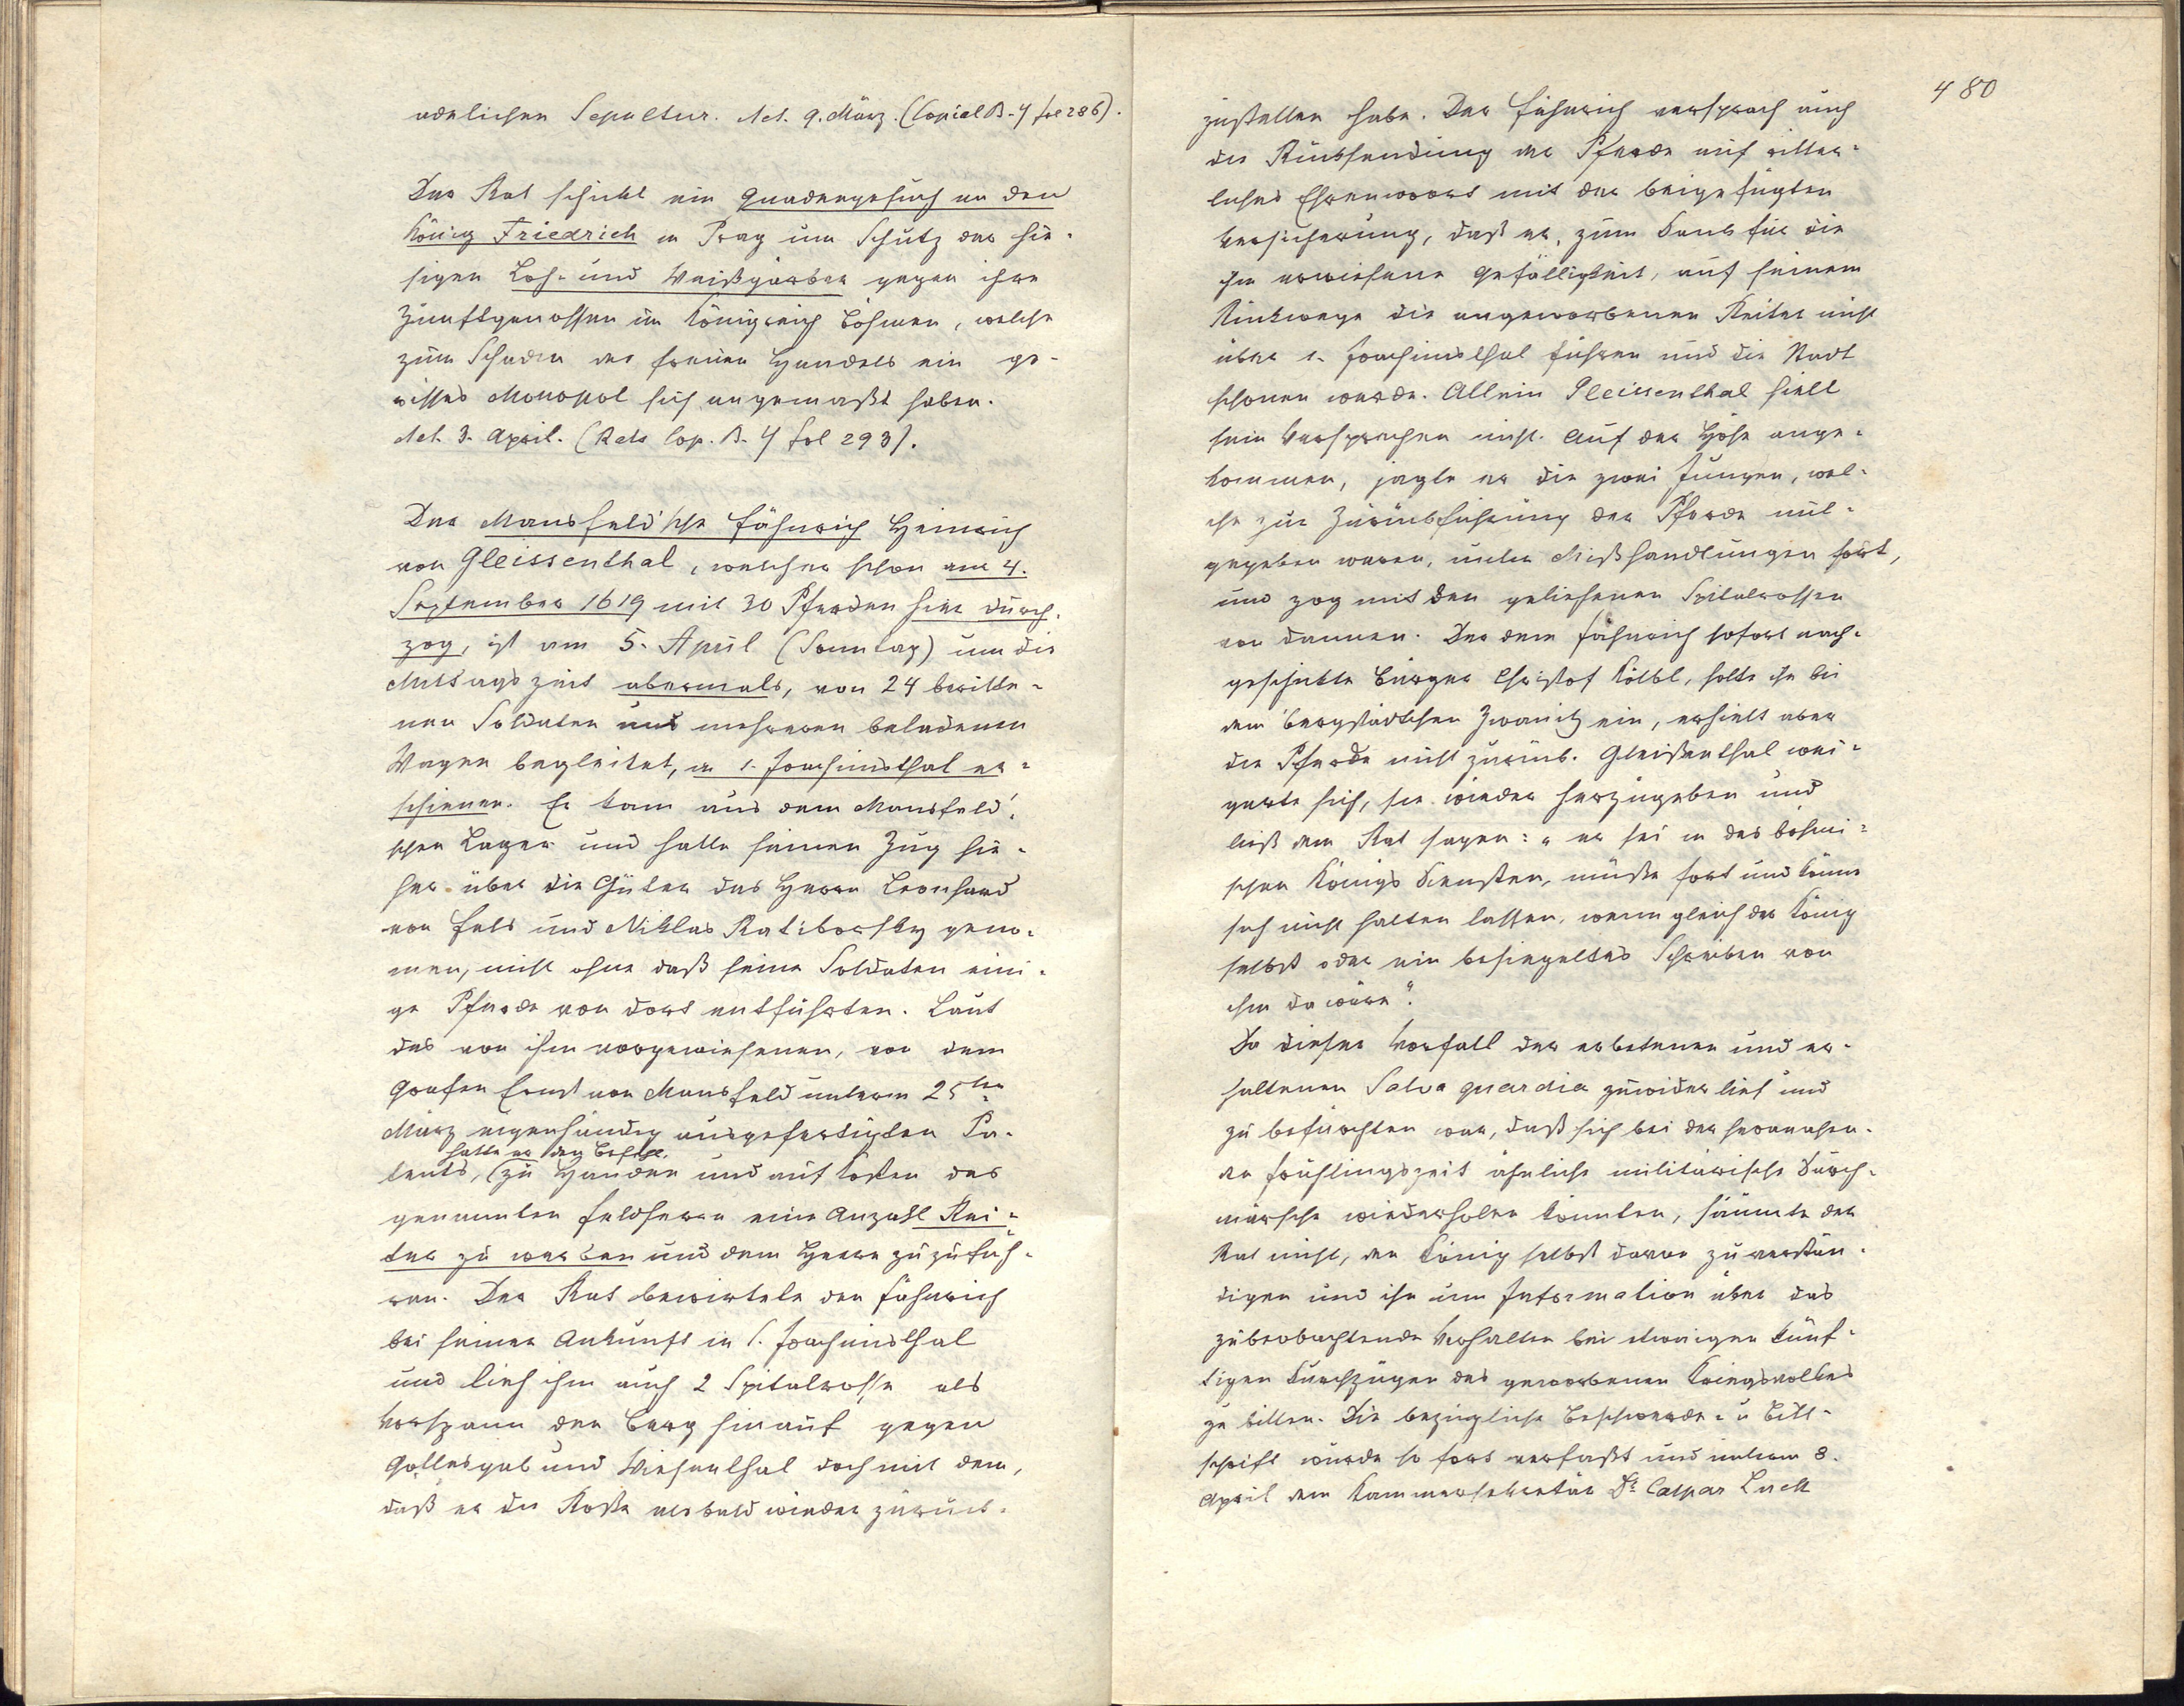 adelichen Sepultur. Act. 9. März. (Copial B. 4 fol 286).
Der Rat schickt ein Gnadengesuch an den
König Friedrich in Prag um Schutz der hie-
sigen Loh- und Weißgärber gegen ihre
Zunftgenossen im Königreich Böhmen, welche
zum Schaden des freien Handels ein ge-
wisses Monopol sich angemaßt haben.
Act. 3. April. (Rats Cop. B. 4 fol 293).
Der Mansfeld'sche Fähnrich Heinrich
von Gleissenthal, welcher schon am 4.
September 1619 mit 30 Pferden hier durch-
zog, ist am 5. April (Sonntag) um die
Mittagszeit abermals, von 24 beritte-
nen Soldaten und mehreren beladenen
Wagen begleitet, in S. Joachimsthal er-
schienen. Er kam aus dem Mansfeld'-
schen Lager und hatte seinen Zug hie-
her über die Güter des Herrn Leonhard
von Fels und Niklas Ratiborsky genom-
men, nicht ohne daß seine Soldaten eini-
ge Pferde von dort entführten. Laut
des von ihm vorgewiesenen, von dem
Grafen Ernst von Mansfeld unterm 25ten
März eigenhändig ausgefertigten Pa-
hatte er den Befehl
tents, (zu Handen und auf Kosten des
genannten Feldherrn eine Anzahl Rei-
ter zu werben und dem Heere zuzufüh-
ren. Der Rat bewirtete den Fähnrich
bei seiner Ankunft in S. Joachimsthal
und lieh ihm auch 2 Spitalrosse als
Vorspann den Berg hinauf gegen
Gottesgab und Wiesenthal doch mit dem,
daß er die Roße alsbald wieder zurück-
480
zustellen habe. Der Fähnrich versprach auch
die Rücksendung der Pferde auf ritter-
liches Ehrenwort mit der beigefügten
Versicherung, daß er, zum Dank für die
ihm erwiesene Gefälligkeit, auf seinem
Rückwege die angeworbenen Reiter nicht
über S. Joachimsthal führen und die Stadt
schonen werde. Allein Gleissenthal hielt
sein Versprechen nicht. Auf der Höhe ange-
kommen, jagte er die zwei Jungen, wel-
che zur Zurückführung der Pferde mit-
gegeben waren, unter Mißhandlungen fort,
und zog mit den geliehenen Spitalrossen
von dannen. Der dem Fähnrich sofort nach-
geschickte Bürger Christof Kölbl, holte ihn bei
dem Bergstädtchen Zwanitz ein, erhielt aber
die Pferde nicht zurück. Gleißenthal wei-
gerte sich, sie wieder herzugeben und
ließ dem Rat sagen: „er sei in des böhmi-
schen Königs Diensten, müße fort und könne
sich nicht halten lassen, wenn gleich der König
selbst oder ein besiegeltes Schreiben von
ihm da wäre".
Da dieser Vorfall der erbetenen und er-
haltenen Salva guardia zuwider lief und
zu befürchten war, daß sich bei der herannahen-
den Frühlingszeit ähnliche militärische Durch-
märsche wiederholen könnten, säumte der
Rat nicht, den König selbst davon zu verstän-
digen und ihn um Information über das
zu beobachtende Verhalten bei etwaigen künf-
tigen Durchzügen des geworbenen Kriegsvolkes
zu bitten. Die bezügliche Beschwerde- u Bitt-
schrift wurde so fort verfaßt und unterm 8.
April dem Kammersekretär Dr Caspar Luck